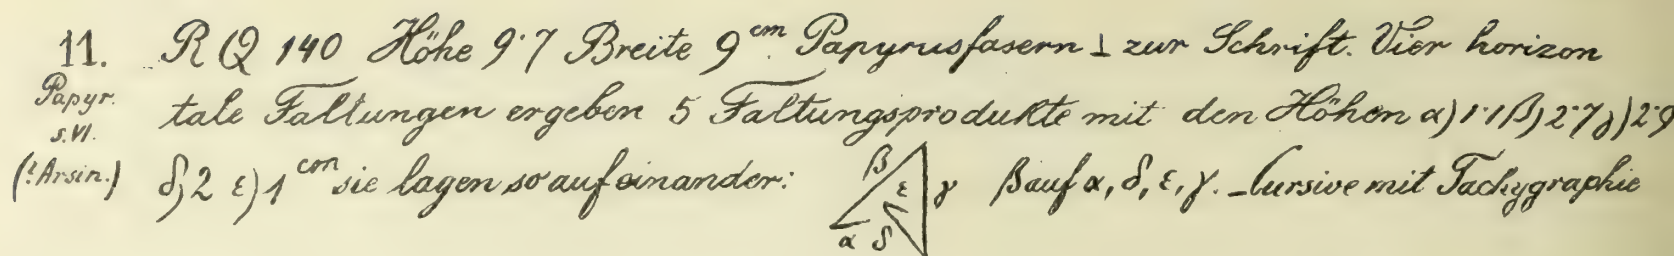 11. R Q 140 Höhe 9·7 Breite 9 cm. Papyrusfasern ⊥ zur Schrift. Vier horizon
Papyr. s.VI. tale Faltungen ergeben 5 Faltungsprodukte mit den Höhen α) 1·1 β) 2·7 γ) 2·9
(? Arsin.) δ) 2 ε) 1 cm sie lagen so aufeinander: β ε γ α δ β auf α, δ, ε, γ. – Cursive mit Tachygraphie